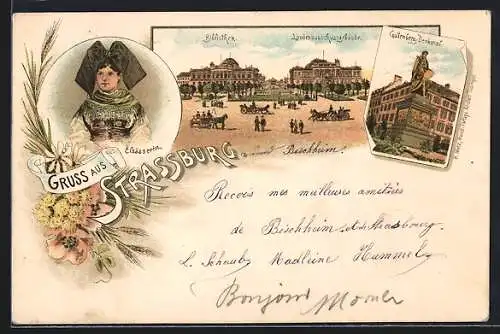 Bibliothek.
Landesausschussgebäude.
Gutenberg-Denkmal.
Elsässerin.
GRUSS AUS
STRASSBURG
Bischheim.
Recois mes meilleures amitiées
de Bischheim Strasbourg.
L. Schaub Madleine Hummel
Bonjour